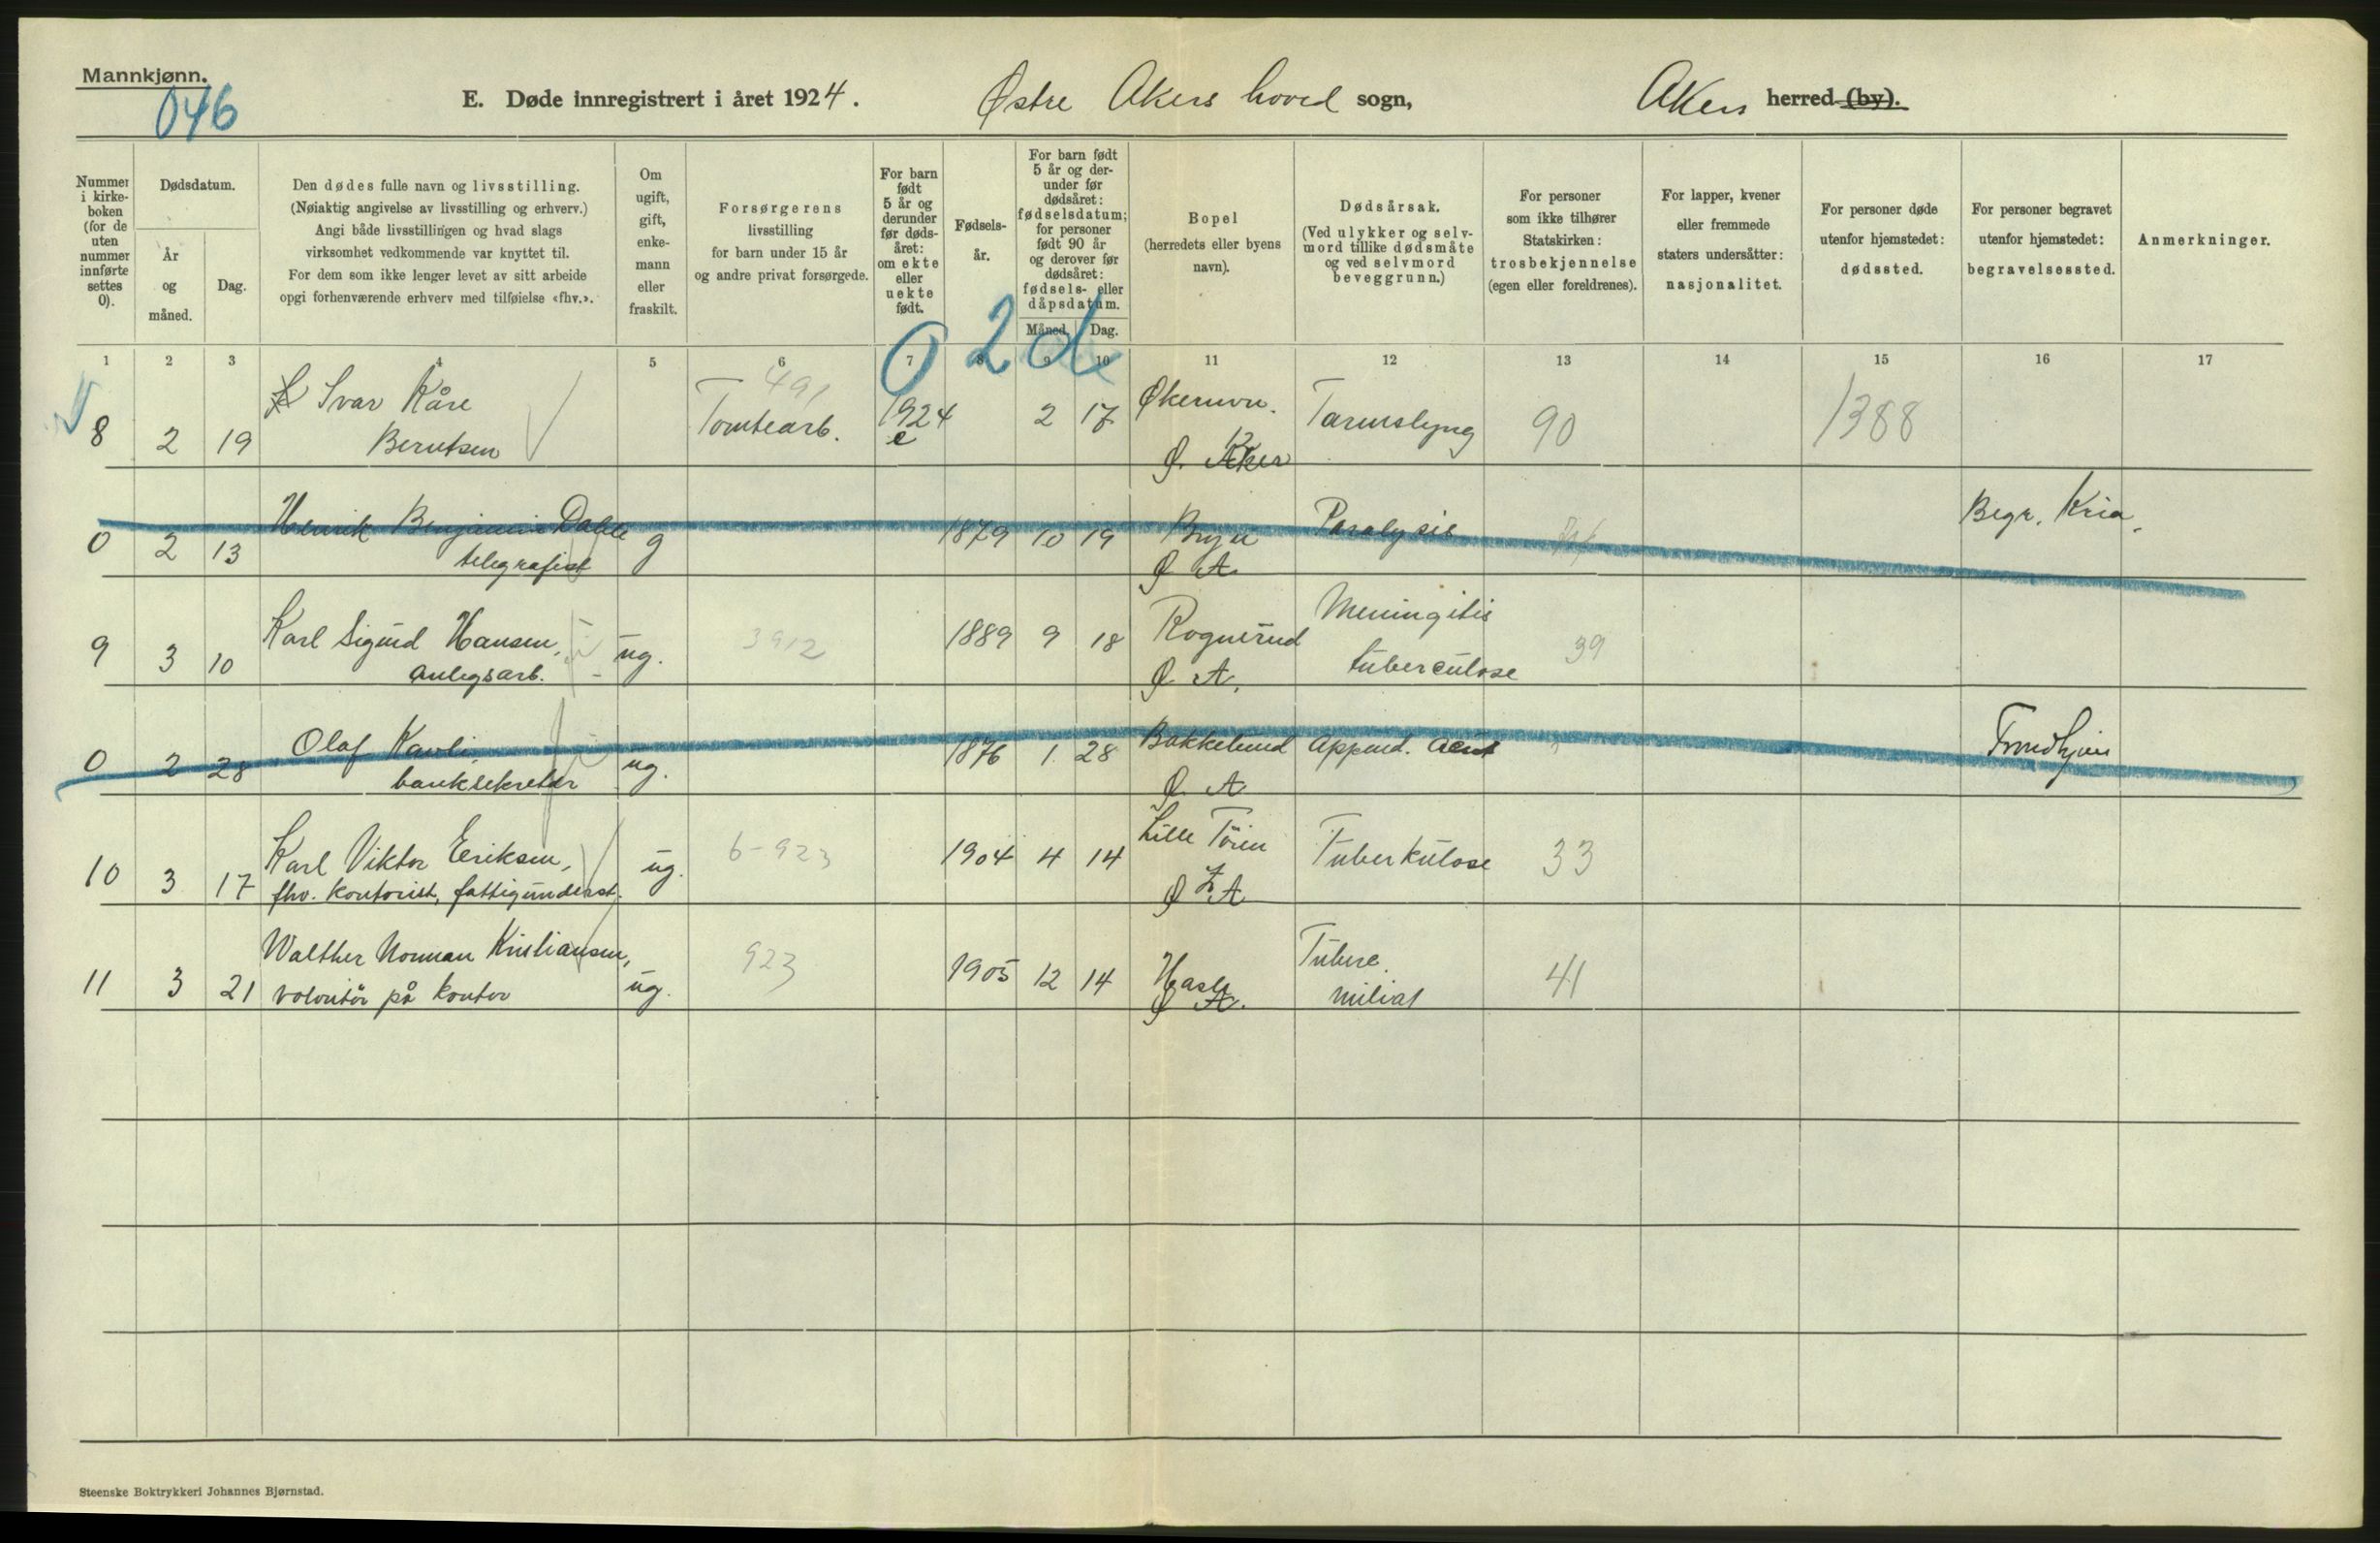 Mannkjønn.
046
E. Døde innregistrert i året 1924. Østre Akers hoved sogn, Akers herred (by).
Nummer i kirkeboken (for de uten nummer innførte settes 0).
Dødsdatum.
År og måned.
Dag.
Den dødes fulle navn og livsstilling.
(Nøiaktig angivelse av livsstilling og erhverv.)
Angi både livsstillingen og hvad slags
virksomhet vedkommende var knyttet til.
For dem som ikke lenger levet av sitt arbeide
opgi forhenværende erhverv med tilføielse «fhv.».
Om ugift, gift, enkemann eller fraskilt.
Forsørgerens
livsstilling
for barn under 15 år
og andre privat forsørgede.
For barn født 5 år og derunder før dødsåret: om ekte eller uekte født.
Fødselsår.
For barn født 5 år og derunder før dødsåret: fødselsdatum; for personer født 90 år og derover før dødsåret: fødsels- eller dåpsdatum.
Måned. Dag.
Bopel
(herredets eller byens navn).
Dødsårsak.
(Ved ulykker og selvmord tillike dødsmåte og ved selvmord beveggrunn.)
For personer som ikke tilhører Statskirken: trosbekjennelse (egen eller foreldrenes).
For lapper, kvener eller fremmede staters undersåtter: nasjonalitet.
For personer døde utenfor hjemstedet: dødssted.
For personer begravet utenfor hjemstedet: begravelsessted.
Anmerkninger.
0 2 d
1 2 3 4 5 6 7 8 9 10 11 12 13 14 15 16 17
Ivar Kåre 491 Økernvn.
8 2 19 Berntsen Tomtearb. 1924 e 2 17 Ø. Aker Tarmslyng 90 1388
Henrik Benjamin Dahle Begr. Kria.
0 2 13 telegrafist g 1879 10 19 Bryn Ø A Paralysis
Karl Sigurd Hansen, Meningitis
9 3 10 anlegsarb. ug. 3912 1889 9 18 Rognerud Ø. A. tuberculose 39
Olaf Kavli Trondhjem
0 2 28 banksekretær ug. 1876 1 28 Bakkelund Ø. A Append. acut
Karl Viktor Eriksen, Lille Tøien
10 3 17 fhv. kontorist, fattigunderst. ug. 6-923 1904 4 14 Ø A Tuberkulose 33
Walther Norman Kristiansen, Tuberc.
11 3 21 volontør på kontor ug. 923 1905 12 14 Hasle Ø A. miliar 41
Steenske Boktrykkeri Johannes Bjørnstad.